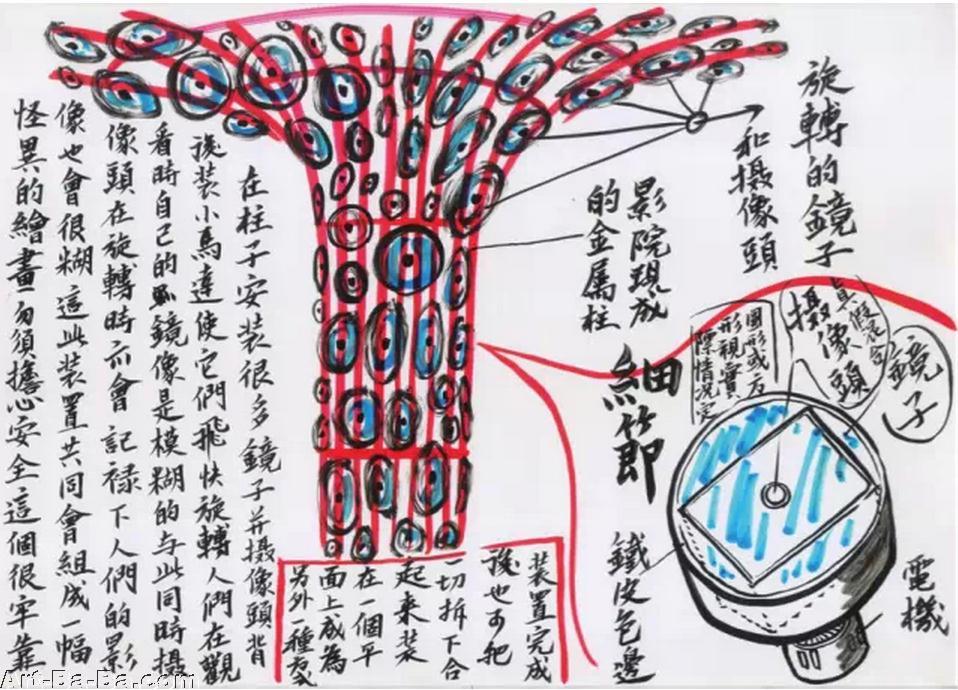 旋轉的鏡子
和摄像頭
影院現成
的金属柱
細節
鏡子
真假混合
摄像頭
圓形或方
形視實
際情況定
電機
鐵皮包邊
装置完成
後也可把
一切拆下合
起来装
在一個平
面上成為
另外一種装
在柱子安装很多鏡子并摄像頭背
後装小馬達使它們飛快旋轉人們在觀
看時自己的鏡像是模糊的与此同時摄
像頭在旋轉時亦會記禄下人們的影
像也會很糊這此装置共同會組成一幅
怪異的繪畫勿須擔心安全這個很牢靠
Art-Ba-Ba.com